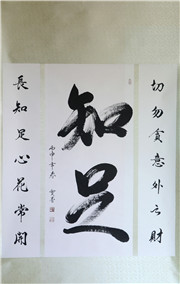 知足
切勿貪意外之財
長知足心花常開
丙申年春